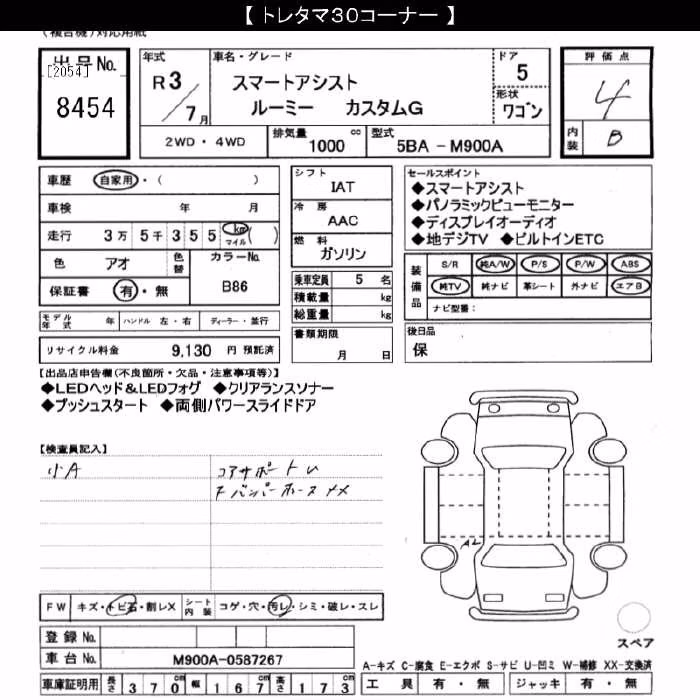 【 トレタマ30コーナー 】
(複合機)対応用紙
出品No.
[2054]
8454
年式
R3/7月
車名・グレード
スマートアシスト
ルーミー カスタムG
ドア
5
形状
ワゴン
評価点
4
内装
B
2WD・4WD
排気量
1000
cc
型式
5BA - M900A
車歴 自家用・( )
車検 年 月
走行 3万 5千 3 5 5 km マイル ( )
色 アオ
色替
カラーNo.
B86
保証書 有・無
モデル年式 年 ハンドル 左・右 ディーラー・並行
リサイクル料金 9,130 円 預託済
シフト
IAT
冷房
AAC
燃料
ガソリン
乗車定員 5 名
積載量 kg
総重量 kg
書類期限
月 日
セールスポイント
◆スマートアシスト
◆パノラミックビューモニター
◆ディスプレイオーディオ
◆地デジTV ◆ビルトインETC
装備品
S/R 純A/W P/S P/W ABS
純TV 純ナビ 革シート 外ナビ エアB
ナビ型番:
後日品
保
【出品店申告欄(不良箇所・欠品・注意事項等)】
◆LEDヘッド&LEDフォグ ◆クリアランスソナー
◆プッシュスタート ◆両側パワースライドドア
【検査員記入】
小A
コアサポートU
FバンパーホースXX
A2
FW キズ・トビ石・割レX
シート内装 コゲ・穴・汚レ・シミ・破レ・スレ
登録No.
車台No. M900A-0587267
車庫証明用 長さ 370 幅 167 高さ 173
スペア
A-キズ C-腐食 E-エクボ S-サビ U-凹ミ W-補修 XX-交換済
工具 有・無 ジャッキ 有・無